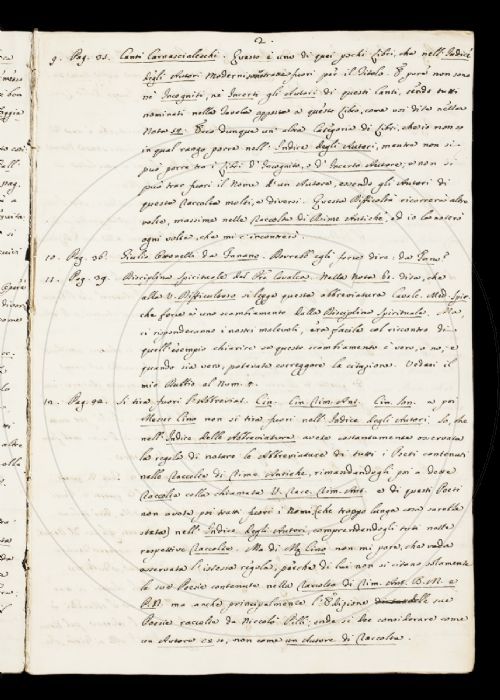 2.
9. Pag. 31. Canti Carnascialeschi. Questo è uno di quei pochi Libri, che nell'Indice
degli Autori Moderni fuori per il Titolo. E pure non sono
nè Incogniti, nè Incerti gli Autori di questi Canti, tutti
nominati nella Tavola apposta a questo Libro, come voi dite nella
Nota Ecco dunque un'altra Categoria di Libri, che io non so
in qual rango porre nell'Indice degli Autori, mentre non si
può porre tra i Libri d'Incognito, o d'Incerto Autore, e non si
può trar fuori il Nome d'un Autore, essendo gli Autori di
questa Raccolta molti, e diversi. Questa Difficoltà ricorrerà altre
volte, massime nelle Raccolte di Rime Antiche, ed io la noterò
ogni volta, che mi
10. Pag. 36. Giulio da Fanano. Dovrebb'egli forse dire: da Fano?
11. Pag. 39. Disciplina Spirituale del Cavalca. Nella Nota dite, che
alla V. si legge questa abbreviatura Cavalc. Med. Spir.
che forse è uno scambiamento dalla Disciplina Spirituale. Ma,
ci risponderanno i nostri malevoli, era facile col riscontro di
quell'esempio chiarire se questo scambiamento è vero, o no; e
quando sia vero, potevate correggere la citazione. Vedasi il
mio al Num.
12. Pag. 42. Si tira fuori l'Abbreviat. Cin. Cin. Rim. Ant. Cin. Son. e poi
Messer Cino non si tira fuori nell'Indice degli Autori. So, che
nell'Indice delle Abbreviature avete costantemente osservata
la regola di notare le Abbreviature di tutti i Poeti contenuti
nelle Raccolte di Rime Antiche, rimandandogli poi a dette
Raccolte colla chiamata V. Racc. Rim. Ant. e di questi Poeti
non avete poi tratti fuori i Nomi (che troppo lunga cosa sarebbe
stata) nell'Indice degli Autori, comprendendogli tutti nelle
respettive Raccolte. Ma di M. Cino non mi pare, che vada
osservata l'istessa regola; perchè di lui non si citano solamente
le sue Poesie contenute nella Raccolta di Rim. Ant. B. M. e
P. N. ma anche principalmente l'Edizione delle sue
Poesie raccolte da Niccolò Pilli; onde si dee considerare come
un Autore, non come un Autore di Raccolta.